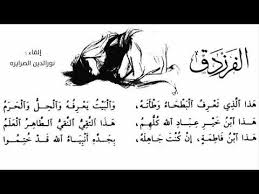 الفَرَزْدَق
إلقاء :
نورالدين الصرايره
هَذَا الَّذِي تَعْرِفُ الْبَطْحَاءُ وَطْأَتَهُ، وَالْبَيْتُ يَعْرِفُهُ وَالْحِلُّ وَالْحَرَمُ
هَذَا ابْنُ خَيْرِ عِبَادِ اللهِ كُلِّهِمُ، هَذَا التَّقِيُّ النَّقِيُّ الطَّاهِرُ الْعَلَمُ
هَذَا ابْنُ فَاطِمَةٍ، إِنْ كُنْتَ جَاهِلَهُ، بِجَدِّهِ أَنْبِيَاءُ اللهِ قَدْ خُتِمُوا